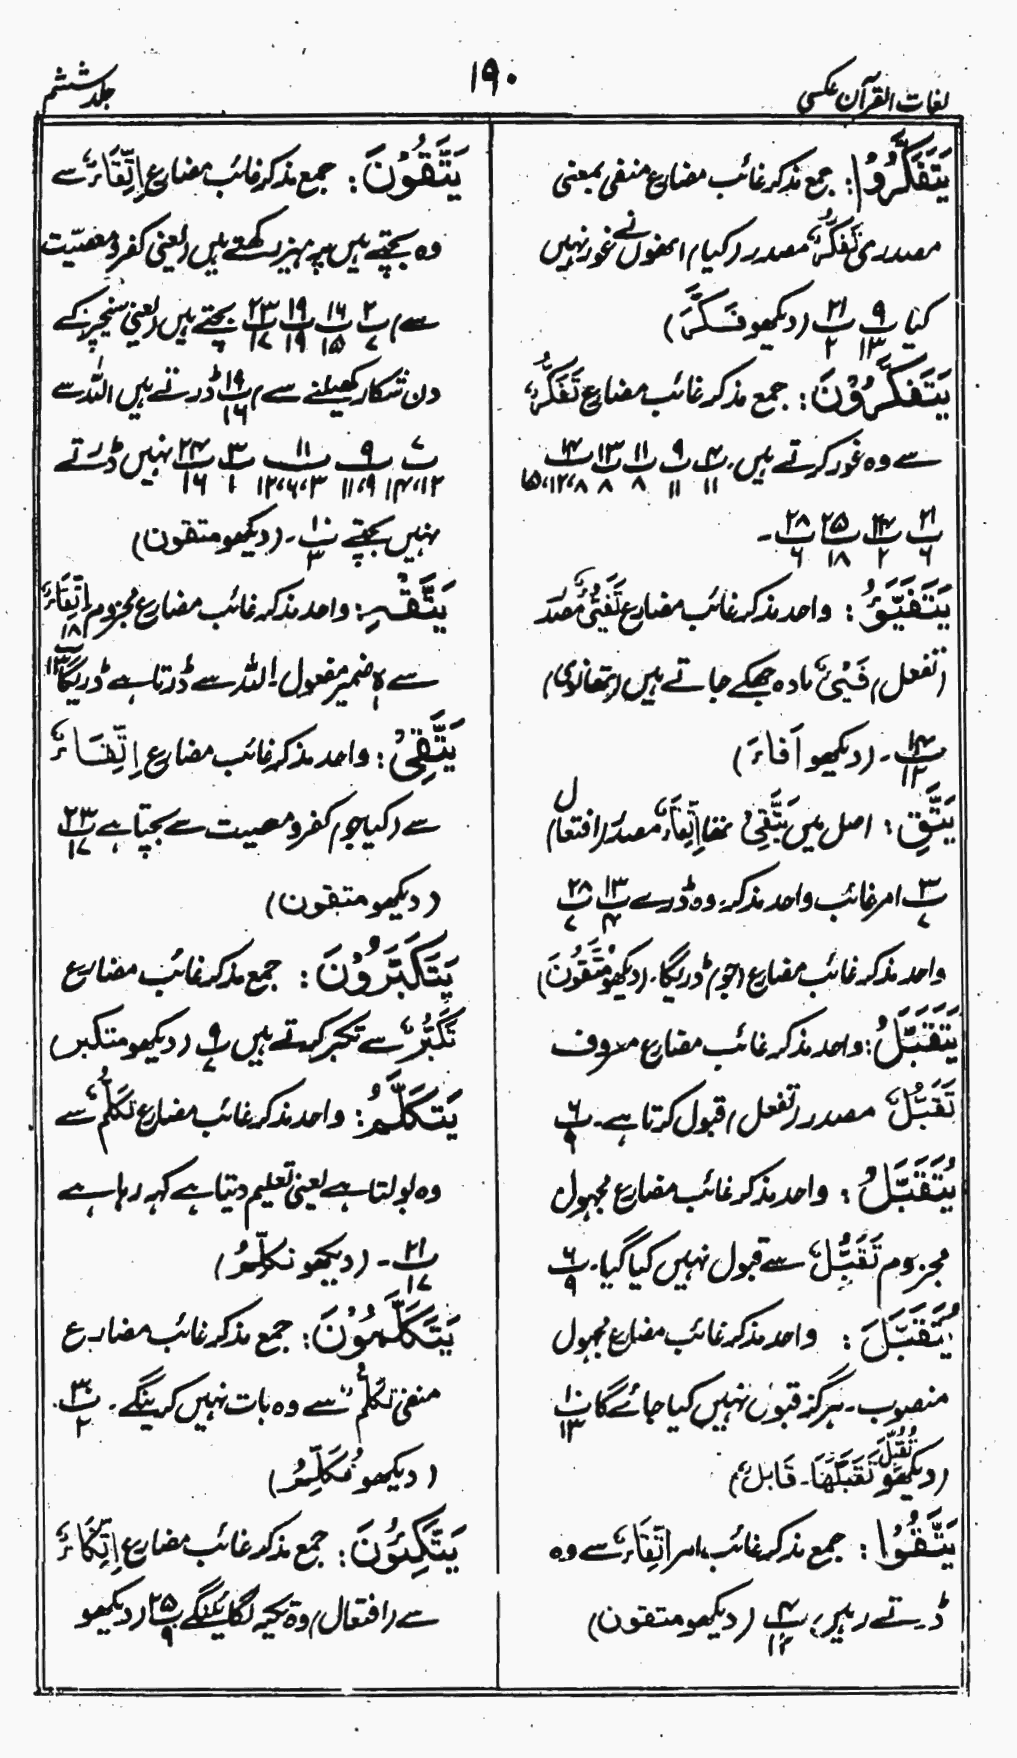 لغات القرآن عکسی
۱۹۰
جلد ششم
یَتَفَکَّرُوْا: جمع مذکر غائب مضارع منفی بمعنی
مصدری تَفَکُّرٌ مصدر (کیا) انھوں نے غور نہیں
کیا پ۹/۱۳ پ۲۱/۲ (دیکھو فَکَّرَ)
یَتَفَکَّرُوْنَ: جمع مذکر غائب مضارع تَفَکُّرٌ
سے وہ غور کرتے ہیں۔ پ۴/۱۱ پ۹/۱۱ پ۱۱/۸ پ۱۳/۸ پ۱۴/۸،۱۲،۱۵
پ۲۱/۶ پ۲۴/۲ پ۲۵/۱۸ پ۲۸/۶۔
یَتَفَیَّؤُ: واحد مذکر غائب مضارع تَفَیُّؤٌ مصدر
(تفعل) فَیْئٌ مادہ جھکے جاتے ہیں (تھانوی)
پ۱۴/۱۲۔ (دیکھو اَفَاءَ)
یَتَّقِ: اصل میں یَتَّقِیْ تھا اِتِّقَاءٌ مصدر (افتعال)
پ۳/۷ امر غائب واحد مذکر۔ وہ ڈرے پ۱۳/۴ پ۲۸/۷
واحد مذکر غائب مضارع (جو) ڈریگا۔ (دیکھو مُتَّقُوْنَ)
یَتَقَبَّلُ: واحد مذکر غائب مضارع معروف
تَقَبُّلٌ مصدر (تفعل) قبول کرتا ہے۔ پ۶/۹
یُتَقَبَّلُ: واحد مذکر غائب مضارع مجہول
مجزوم تَقَبُّلٌ سے قبول نہیں کیا گیا۔ پ۶/۹
یُتَقَبَّلَ: واحد مذکر غائب مضارع مجہول
منصوب۔ ہرگز قبول نہیں کیا جائے گا پ۱۰/۱۳
(دیکھو تُقُبِّلَ تَقَبَّلَهَا۔ قَابِلٌ)
یَتَّقُوْا: جمع مذکر غائب، امر اِتِّقَاءٌ سے وہ
ڈرتے رہیں، پ۴/۱۲ (دیکھو متقون)
یَتَّقُوْنَ: جمع مذکر غائب مضارع اِتِّقَاءٌ سے
وہ بچتے ہیں پرہیز رکھتے ہیں (یعنی کفر و معصیت
سے) پ۲/۷ پ۱۶/۱۵ پ۱۹/۱۹ پ۲۳/۱۷ بچتے ہیں (یعنی سنیچر کے
دن شکار کھیلنے سے) پ۱۹/۱۶ ڈرتے ہیں اللہ سے
پ۷/۱۲،۱۴ پ۹/۹،۱۱ پ۱۱/۳،۶،۱۲ پ۳/۱ پ۲۴/۱۶ نہیں ڈرتے
نہیں بچتے پ۱۰/۳۔ (دیکھو متقون)
یَتَّقْہِ: واحد مذکر غائب مضارع مجزوم اِتِّقَاءٌ
سے ہ ضمیر مفعول۔ اللہ سے ڈرتا ہے ڈریگا پ۱۸/۱۳
یَتَّقِیْ: واحد مذکر غائب مضارع اِتِّقَاءٌ
سے (کیا جو) کفر و معصیت سے بچتا ہے پ۲۳/۱۷
(دیکھو متقون)
یَتَکَبَّرُوْنَ: جمع مذکر غائب مضارع
تَکَبُّرٌ سے تکبر کرتے ہیں پ۹/۷ (دیکھو متکبر)
یَتَکَلَّمُ: واحد مذکر غائب مضارع تَکَلُّمٌ سے
وہ بولتا ہے یعنی تعلیم دیتا ہے کہہ رہا ہے
پ۲۱/۱۷۔ (دیکھو نُکَلِّمُ)
یَتَکَلَّمُوْنَ: جمع مذکر غائب مضارع
منفی تَکَلُّمٌ سے وہ بات نہیں کرینگے۔ پ۳۰/۲
(دیکھو نُکَلِّمُ)
یَتَّکِئُوْنَ: جمع مذکر غائب مضارع اِتِّکَاءٌ
سے (افتعال) وہ تکیہ لگائینگے پ۲۵/۹ (دیکھو